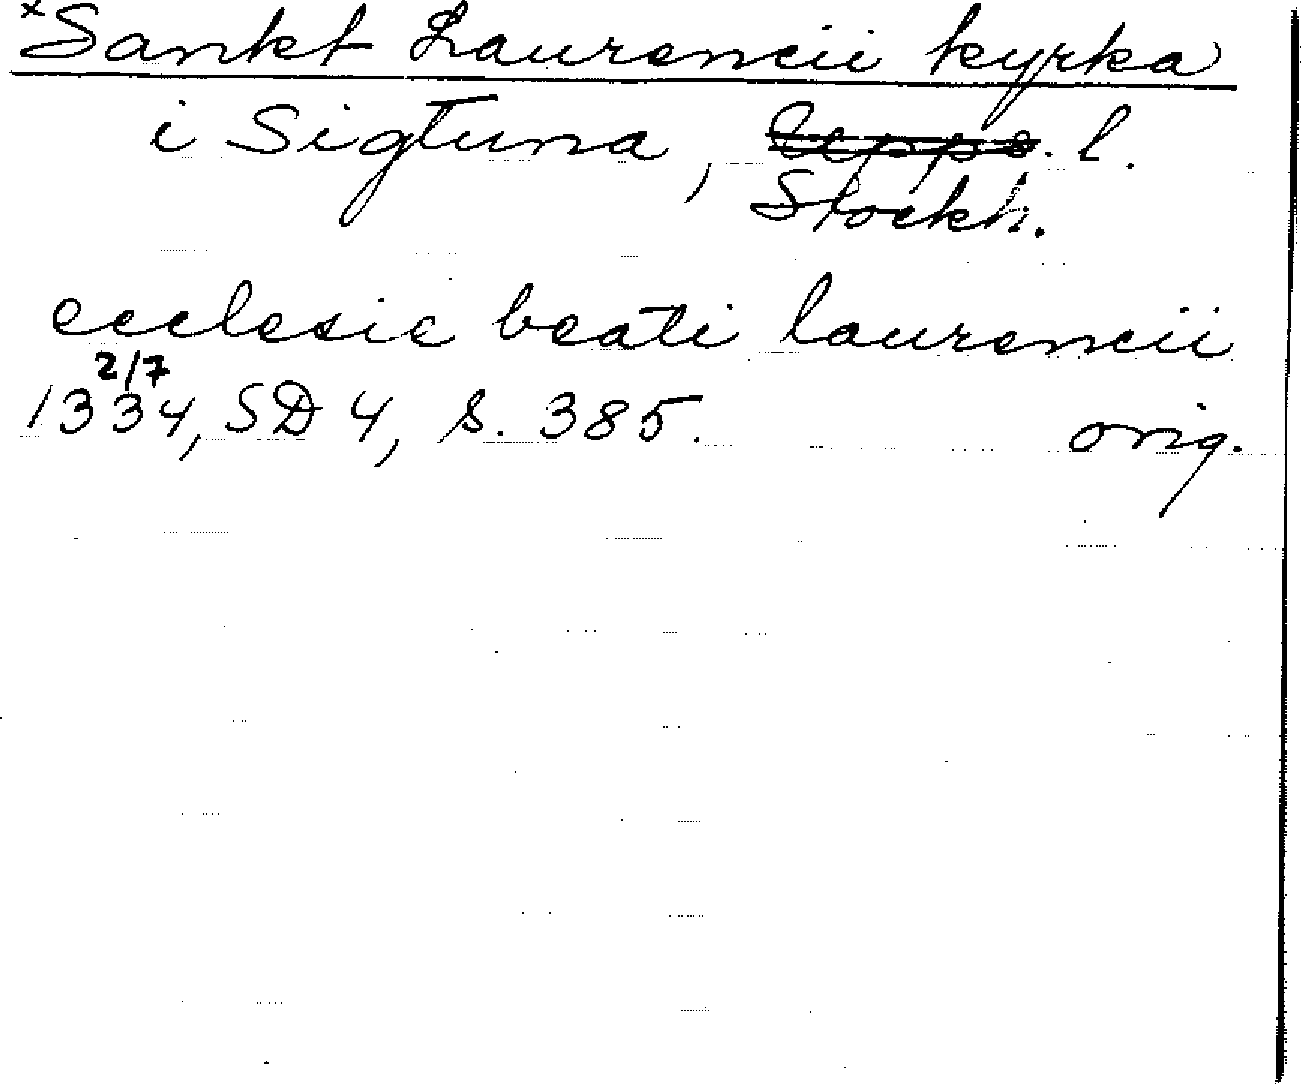 ×Sankt Laurencii kyrka
i Sigtuna, Upps. l.
Stockh.
ecclesie beati laurencii
2/7
1334, SD 4, s. 385. orig.